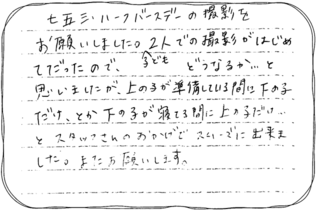 七五三・ハーフバースデーの撮影を
お願いしました。2人での撮影がはじめ
てだったので、子どもどうなるか…と
思いましたが、上の子が準備している間に下の子
だけ、とか下の子が寝てる間に上の子だけ…
とスタッフさんのおかげでスムーズに出来ま
した。またお願いします。